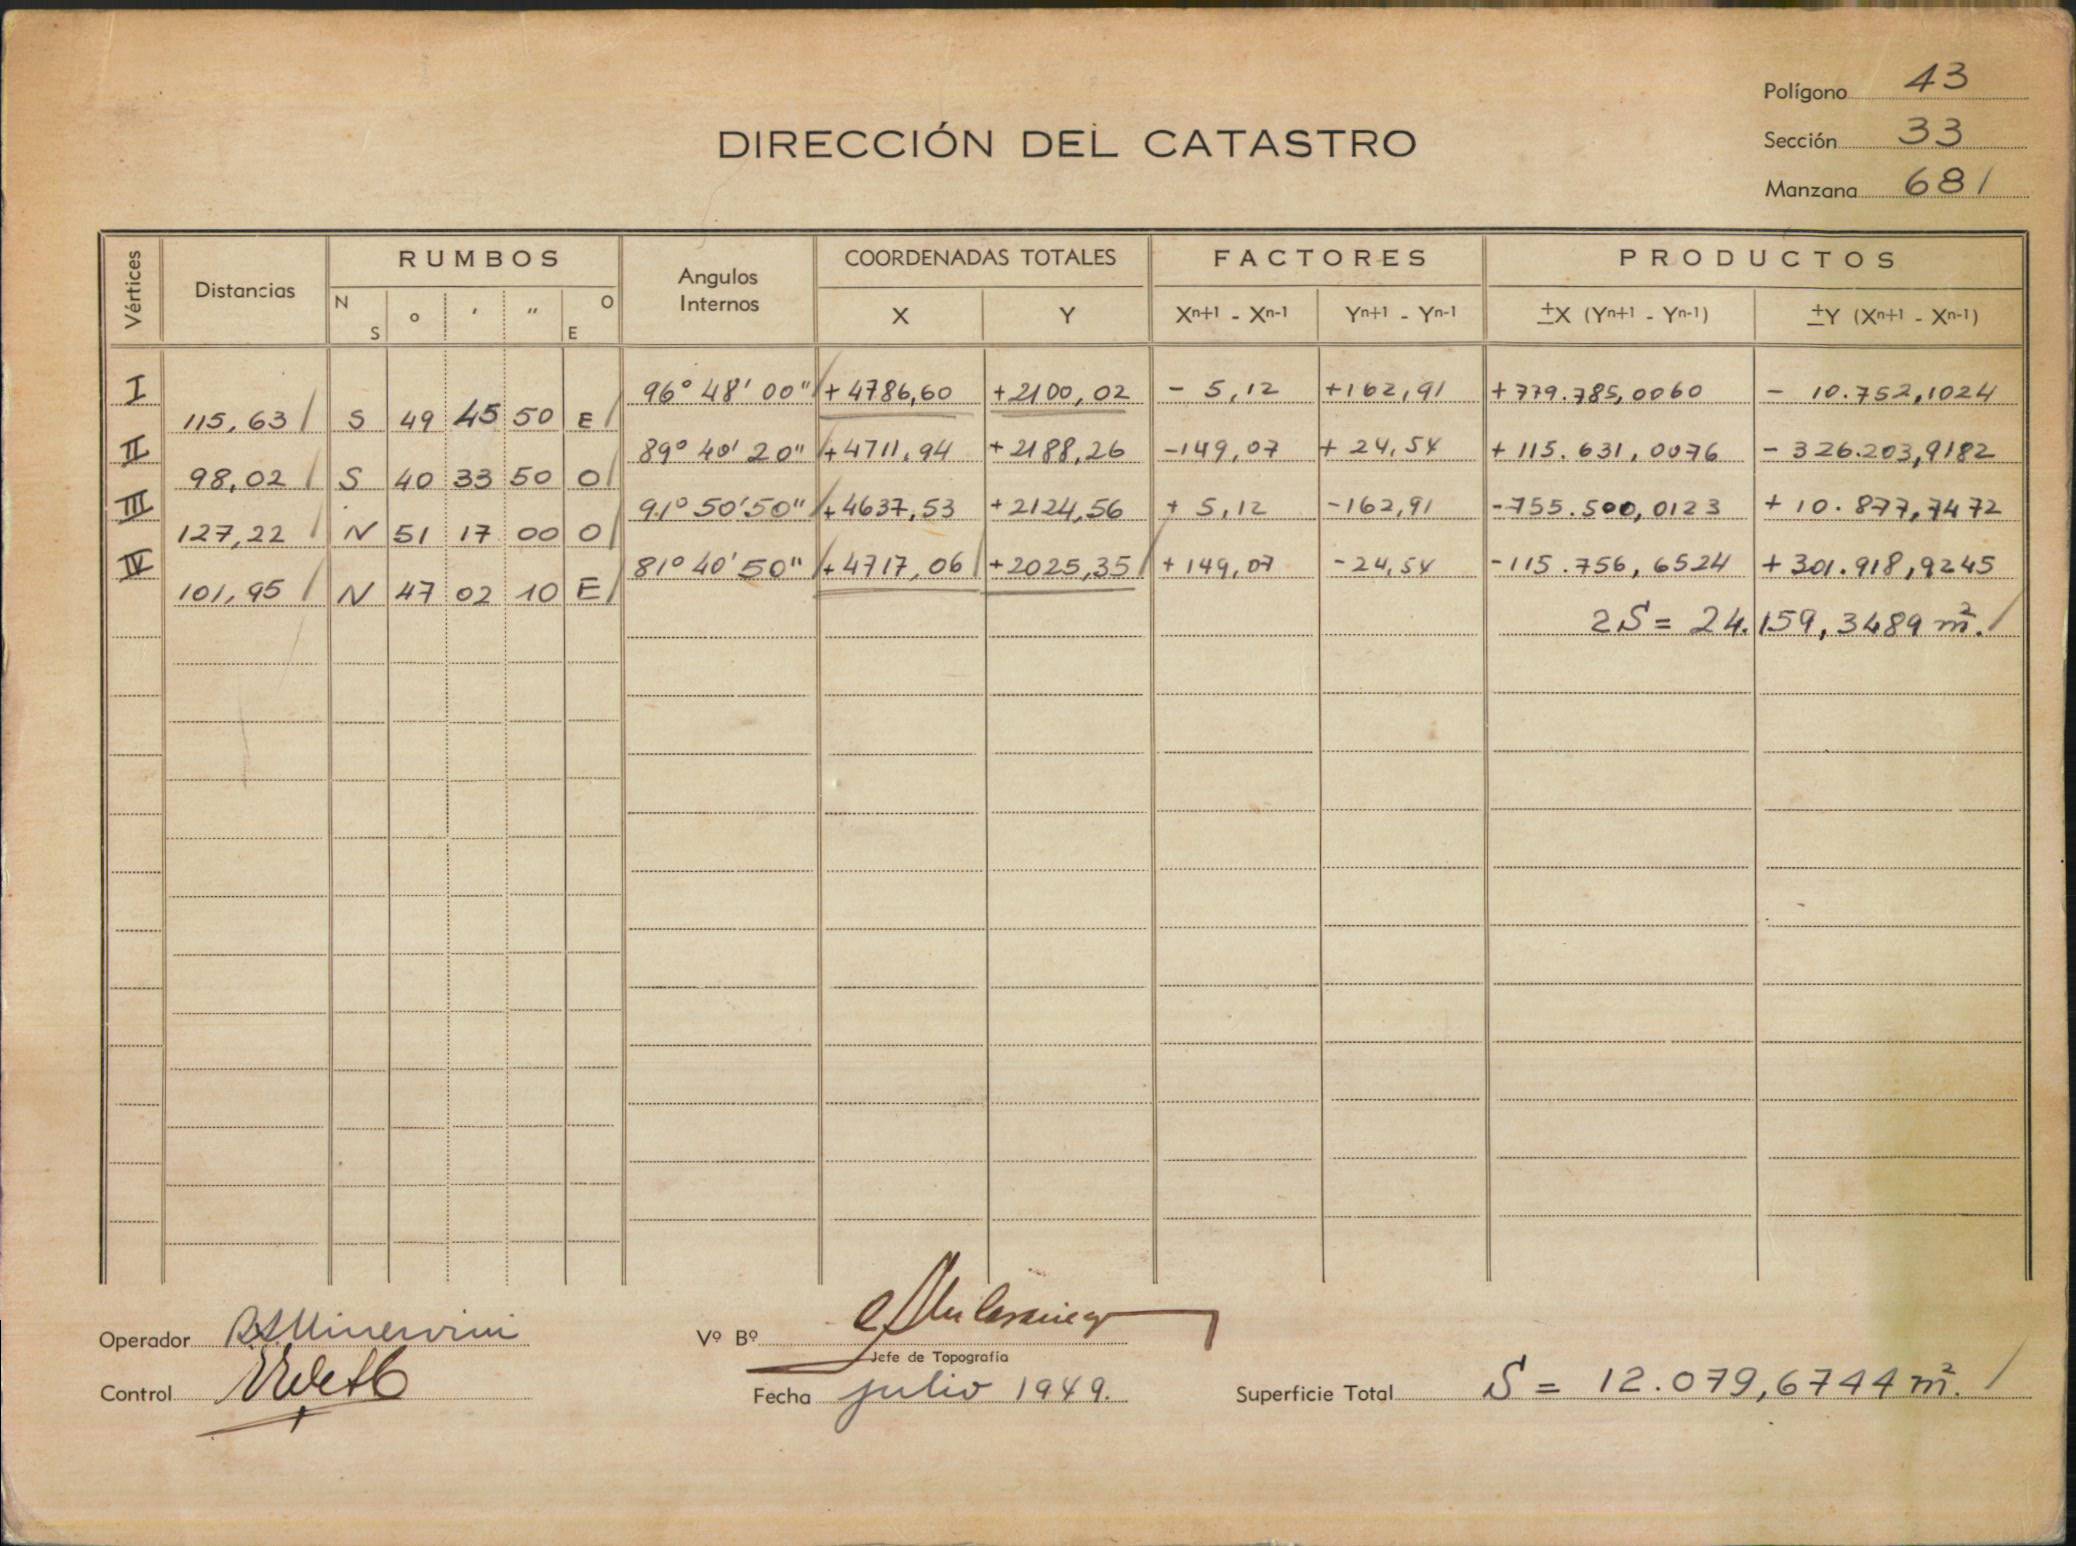 Polígono 43
DIRECCIÓN DEL CATASTRO
Sección 33
Manzana 681
Vértices Distancias RUMBOS Angulos Internos COORDENADAS TOTALES FACTORES PRODUCTOS
N S o ' " O E X Y Xn+1 - Xn-1 Yn+1 - Yn-1 ±X (Yn+1 - Yn-1) ±Y (Xn+1 - Xn-1)
I 96° 48' 00" +4786,60 +2100,02 - 5,12 +162,91 +779.785,0060 - 10.752,1024
115,63 S 49 45 50 E
II 89° 40' 20" +4711,94 +2188,26 -149,07 + 24,54 + 115.631,0076 - 326.203,9182
98,02 S 40 33 50 O
III 91° 50' 50" +4637,53 +2124,56 + 5,12 -162,91 -755.500,0123 + 10.877,7472
127,22 N 51 17 00 O
IV 81° 40' 50" +4717,06 +2025,35 +149,07 -24,54 -115.756,6524 +301.918,9245
101,95 N 47 02 10 E
2S = 24.159,3489 m².
Operador Minervini
Vº Bº
Jefe de Topografía
Control
Fecha julio 1949.
Superficie Total S = 12.079,6744 m².